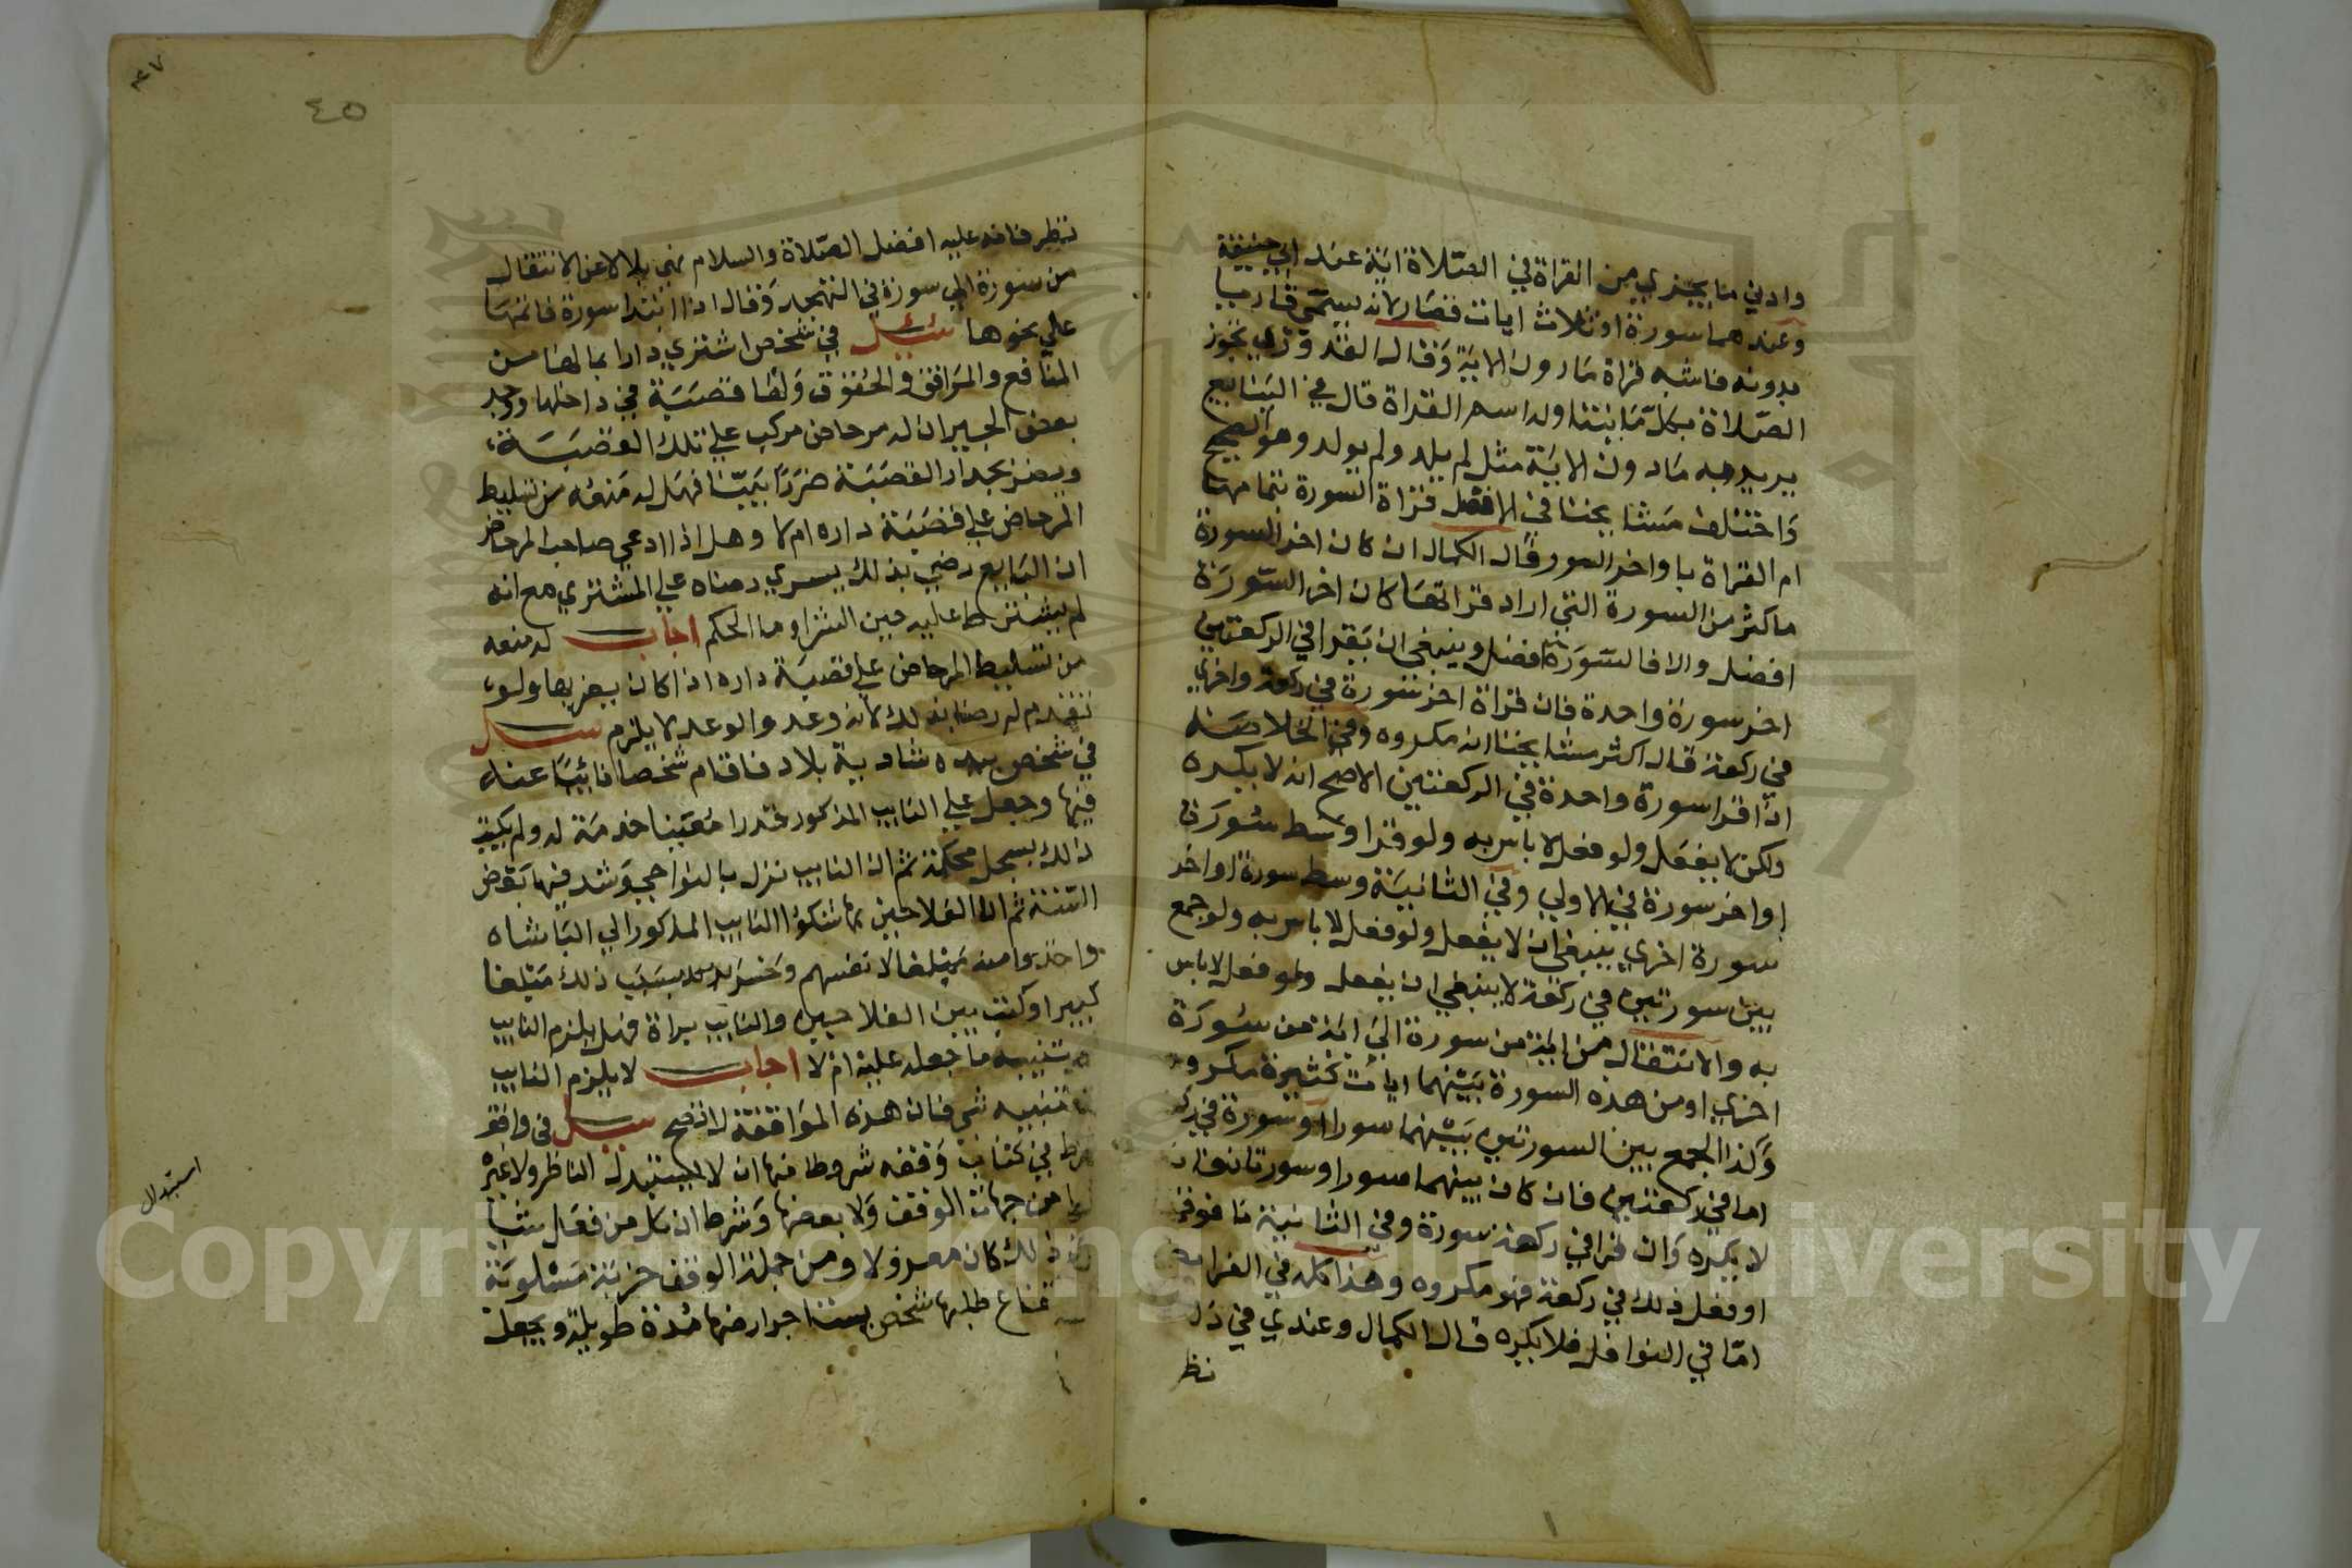 وادني ما يجزي من القراة في الصلاة اية عند ابي حنيفة
وعندهما سورة او ثلاث ايات قصار لانه يسمى قاريا
بدونه فاشبه قراة مادون الاية وقال القدوري يجوز
الصلاة بكل ما يتناوله اسم القراة قال في الينابيع
يريد به مادون الاية مثل لم يلد ولم يولد وهو الصحيح
واختلف مشايخنا في الافضل قراة السورة بتمامها
ام القراة باواخر السور وقال الكمال ان كان اخر السورة
ماكثر من السورة التي اراد قراتها كان اخر السورة
افضل والا فالسورة افضل وينبغي ان يقرا في الركعتين
اخر سورة واحدة فان قراة اخر سورة في ركعة واخري
في ركعة قال اكثر مشايخنا انه مكروه وفي الخلاصة
اذا قرا سورة واحدة في الركعتين الاصح انه لا يكره
ولكن لا يفعل ولو فعل لا باس به ولو قرا وسط سورة
او اخر سورة في الاولي وفي الثانية وسط سورة او اخر
سورة اخري ينبغي ان لا يفعل ولو فعل لا باس به ولو جمع
بين سورتين في ركعة لا ينبغي ان يفعل ولو فعل لا باس
به والانتقال من اية من سورة الي اية من سورة
اخري او من هذه السورة بينهما ايات كثيرة مكروه
وكذا الجمع بين السورتين بينهما سور او سورة في ركـ
اما في ركعتين فان كان بينهما سور او سورتان
لا يكره وان قرا في ركعة سورة وفي الثانية ما فوقها
او فعل ذلك في ركعة فهو مكروه وهذا كله في الفرايض
اما في النوافل فلا يكره قال الكمال وعندي في ذلك
نظر
٤٥
نظر فانه عليه افضل الصلاة والسلام نهي بلالا عن الانتقال
من سورة الي سورة في التهجد وقال اذا ابتدا سورة فاتمها
علي نحوها سئل في شخص اشتري دارا بما لها من
المنافع والمرافق والحقوق ولها قصبة في داخلها وجد
بعض الجيران له مرحاض مركب علي تلك القصبة
ويضر بجدار القصبة ضررا بينا فهل له منعه من تسليط
المرحاض علي قصبة داره ام لا وهل اذا ادعي صاحب المرحاض
ان البايع رضي بذلك يسري رضاه علي المشتري مع انه
لم يشترط عليه حين الشرا وما الحكم اجاب له منعه
من تسليط المرحاض علي قصبة داره اذا كان يضر بها ولو
تقدم له رضا بذلك لانه وعد والوعد لا يلزم سئل
في شخص بيده شادية بلاد فاقام شخصا نائبا عنه
فيها وجعل علي النايب المذكور قدرا معينا خدمة له ولم يكتب
ذلك بسجل محكمة ثم ان النايب نزل بالنواحي وشد فيها بعض
السنة ثم ان الفلاحين بها شكوا النايب المذكور الي الباشاه
واخذوا منه مبلغا لانفسهم وخسر بسبب ذلك مبلغا
كبيرا وكتب بين الفلاحين والنايب براة فهل يلزم النايب
ما جعله عليه ام لا اجاب لا يلزم النايب
شي فان هذه الموافقة لا تصح سئل في واقف
شرط في كتاب وقفه شروطا منها ان لا يستبدل الناظر ولا غيره
من جهات الوقف ولا بعضها وشرط ان كل من فعل شيا
ذلك كان معزولا ومن جملة الوقف خربة مسلوبة
طلبها شخص يستاجر ارضها مدة طويلة ويجعل
استبدال